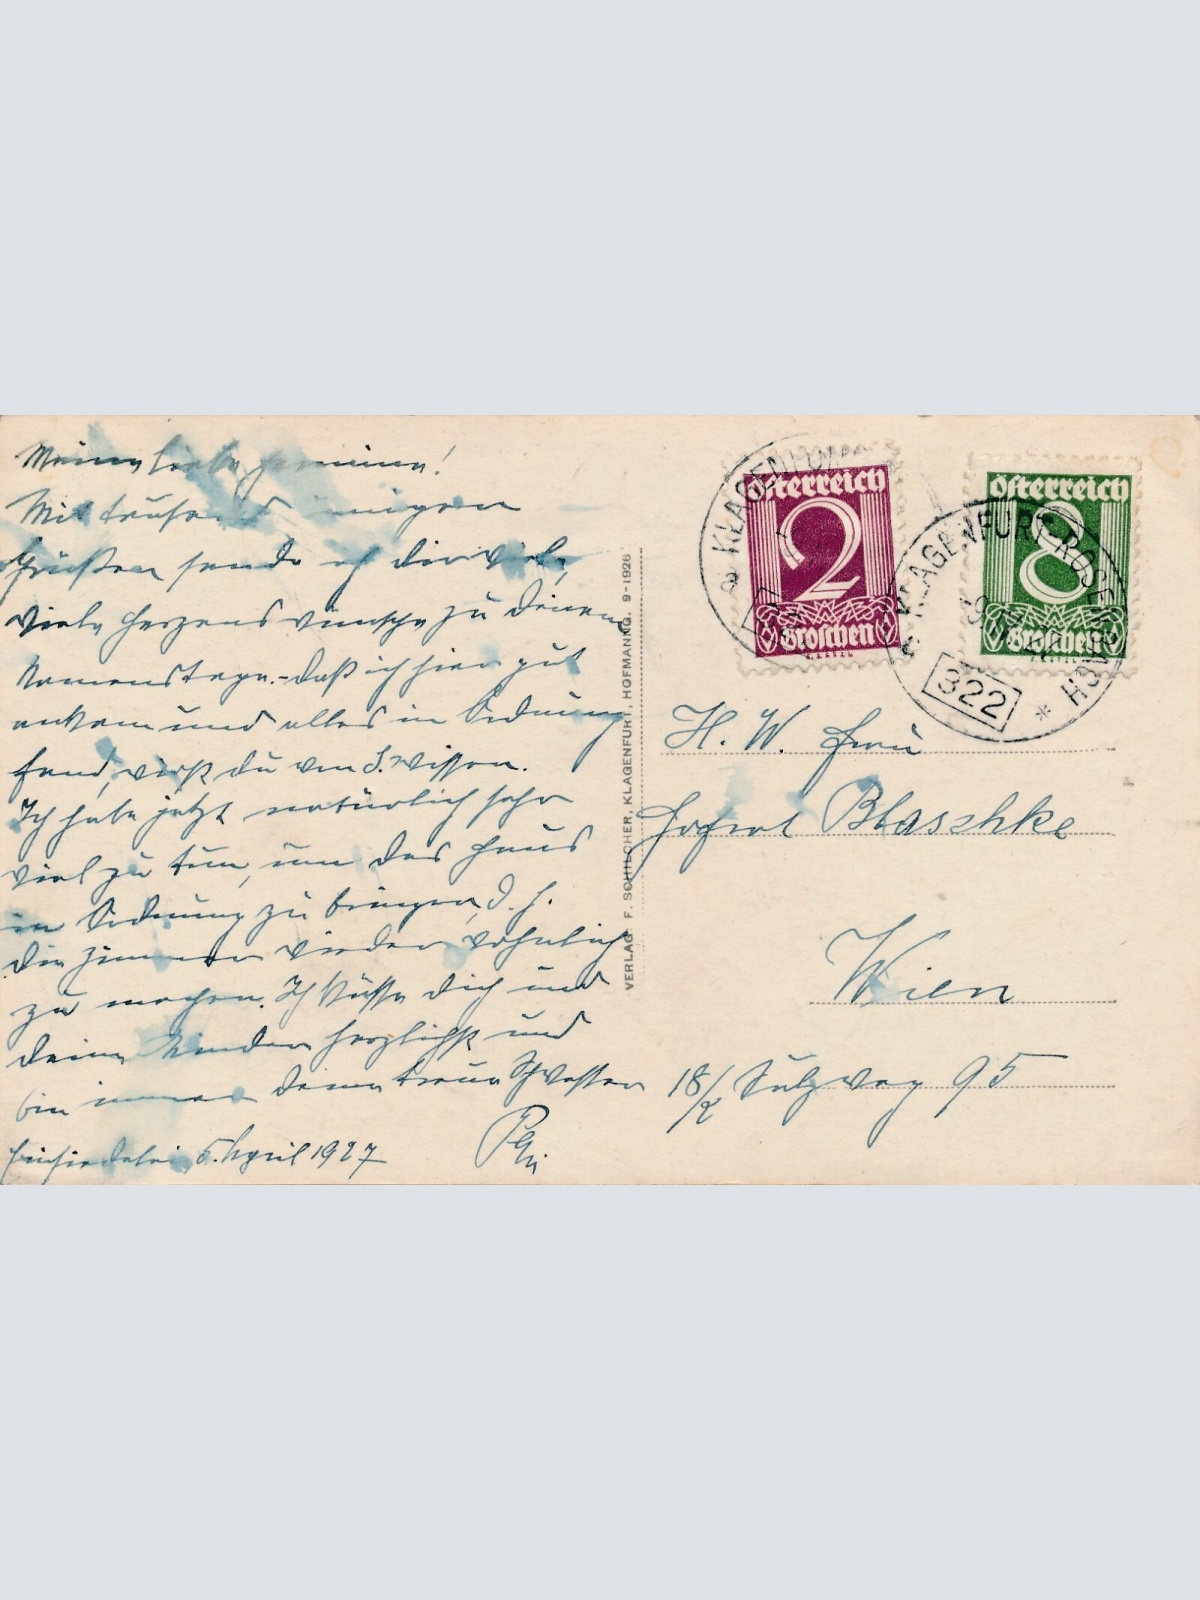 Meine liebe Hermine!
Mit tausend innigen
Grüßen sende ich dir viele,
viele Herzenswünsche zu Deinem
Namenstage.- Daß ich hier gut
ankam und alles in Ordnung
fand, wirst du von wissen.
Ich habe jetzt natürlich sehr
viel zu tun, um das Haus
in Ordnung zu bringen, d. h.
die Zimmer wieder wohnlich
zu machen. Ich küsse dich und
deine Kinder herzlichst und
bin immer deine treue Schwester
5. April 1927
VERLAG F. SCHILCHER, KLAGENFURT, HOFMANNG. 9-1926
Österreich
2
Groschen
Österreich
8
Groschen
KLAGENFURT
8 KLAGENFURT-ROSENBACH *
322
H. W. Frau
Hofrat Blaschke
Wien
18/ Sulzweg 95